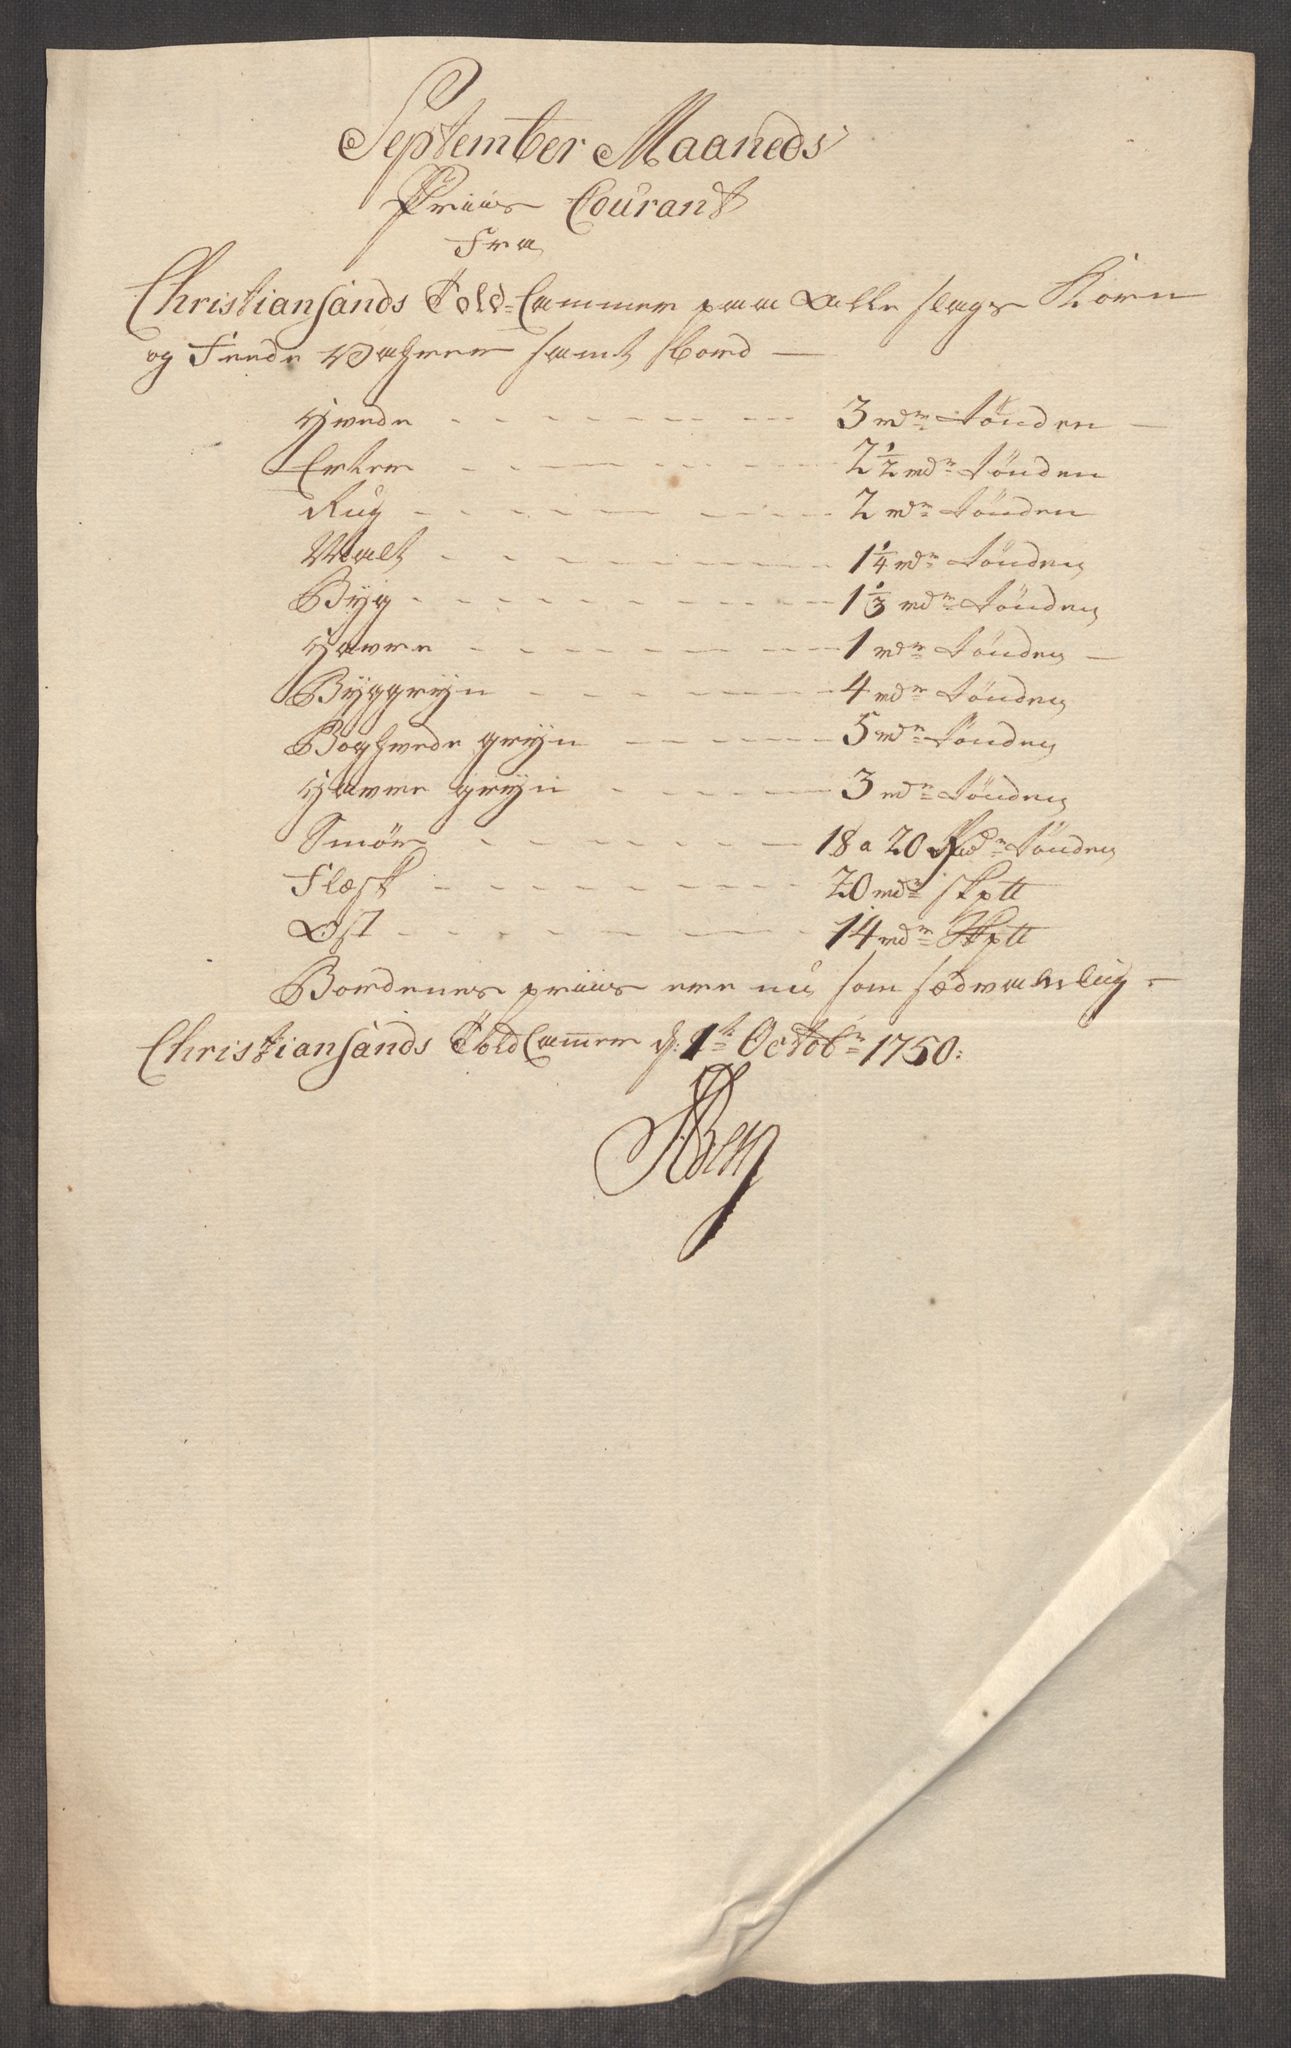 September Maaneds
Priis Courant
Fra
Christiansands Told-Cammer paa Alle slags Korn
og Feede Vahrer samt bord —
Hvede - - - - - - - 3 rdr Tønden —
Erter - - - - - - - 2 1/2 rdr Tønden
Rug - - - - - - - 2 rdr Tønden
Malt - - - - - - - 1 1/4 rdr Tønden
Byg - - - - - - - 1 1/3 rdr Tønden
Havre - - - - - - - 1 rdr Tønden —
Byggryn - - - - - - 4 rdr Tønden
Boghvede gryn - - - - - 5 rdr Tønden
Havre gryn - - - - - 3 rdr Tønden
Smør - - - - - - - 18 a 20 Rdr Tønden
Flæsk - - - - - - - 20 rdr skptt
Ost - - - - - - - 14 rdr Skptt
Bordenes priis ere nu som sædvahnlig -
Christiansands Told Cam̅er d: 1te Octobr 1750: